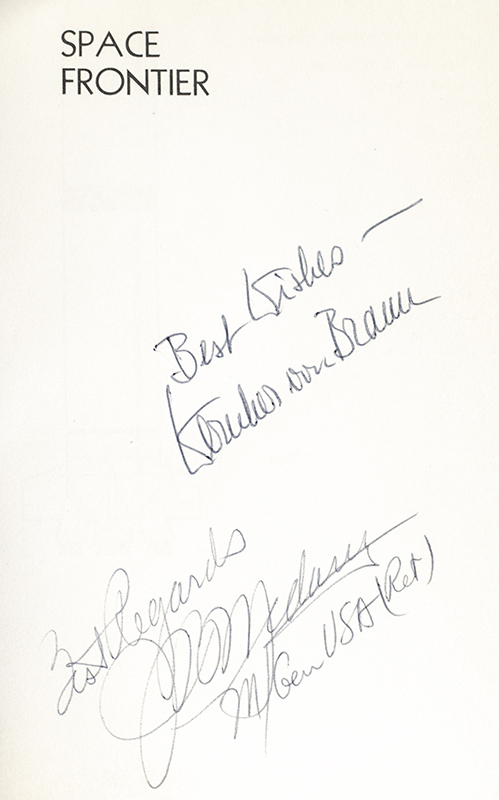 SPACE
FRONTIER
Best Wishes —
Wernher von Braun
Best Regards
J B Medaris
M/Gen USA (Ret)